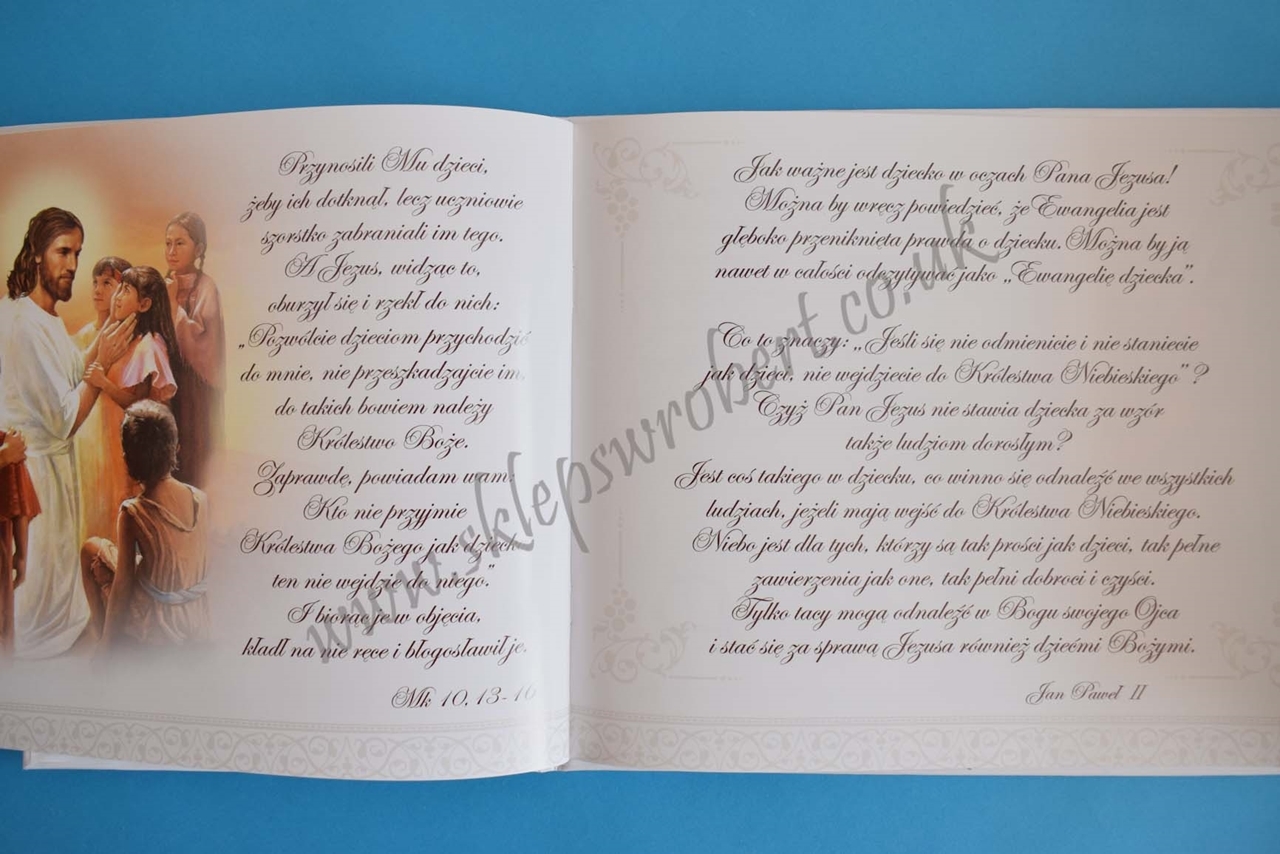 Przynosili Mu dzieci,
żeby ich dotknął, lecz uczniowie
szorstko zabraniali im tego.
A Jezus, widząc to,
oburzył się i rzekł do nich:
„Pozwólcie dzieciom przychodzić
do mnie, nie przeszkadzajcie im,
do takich bowiem należy
Królestwo Boże.
Zaprawdę, powiadam wam:
Kto nie przyjmie
Królestwa Bożego jak
ten nie wejdzie do niego."
I biorąc je w objęcia,
kładł na nie ręce i błogosławił je.
Mk 10, 13-16
Jak ważne jest dziecko w oczach Pana Jezusa!
Można by wręcz powiedzieć, że Ewangelia jest
głęboko przeniknięta prawdą o dziecku. Można by ją
nawet w całości odczytywać jako „Ewangelię dziecka".
Co to znaczy: „Jeśli się nie odmienicie i nie staniecie
jak dzieci, nie wejdziecie do Królestwa Niebieskiego"?
Czyż Pan Jezus nie stawia dziecka za wzór
także ludziom dorosłym?
Jest coś takiego w dziecku, co winno się odnaleźć we wszystkich
ludziach, jeżeli mają wejść do Królestwa Niebieskiego.
Niebo jest dla tych, którzy są tak prości jak dzieci, tak pełne
zawierzenia jak one, tak pełni dobroci i czyści.
Tylko tacy mogą odnaleźć w Bogu swojego Ojca
i stać się za sprawą Jezusa również dziećmi Bożymi.
Jan Paweł II
www.sklepswrobert.co.uk